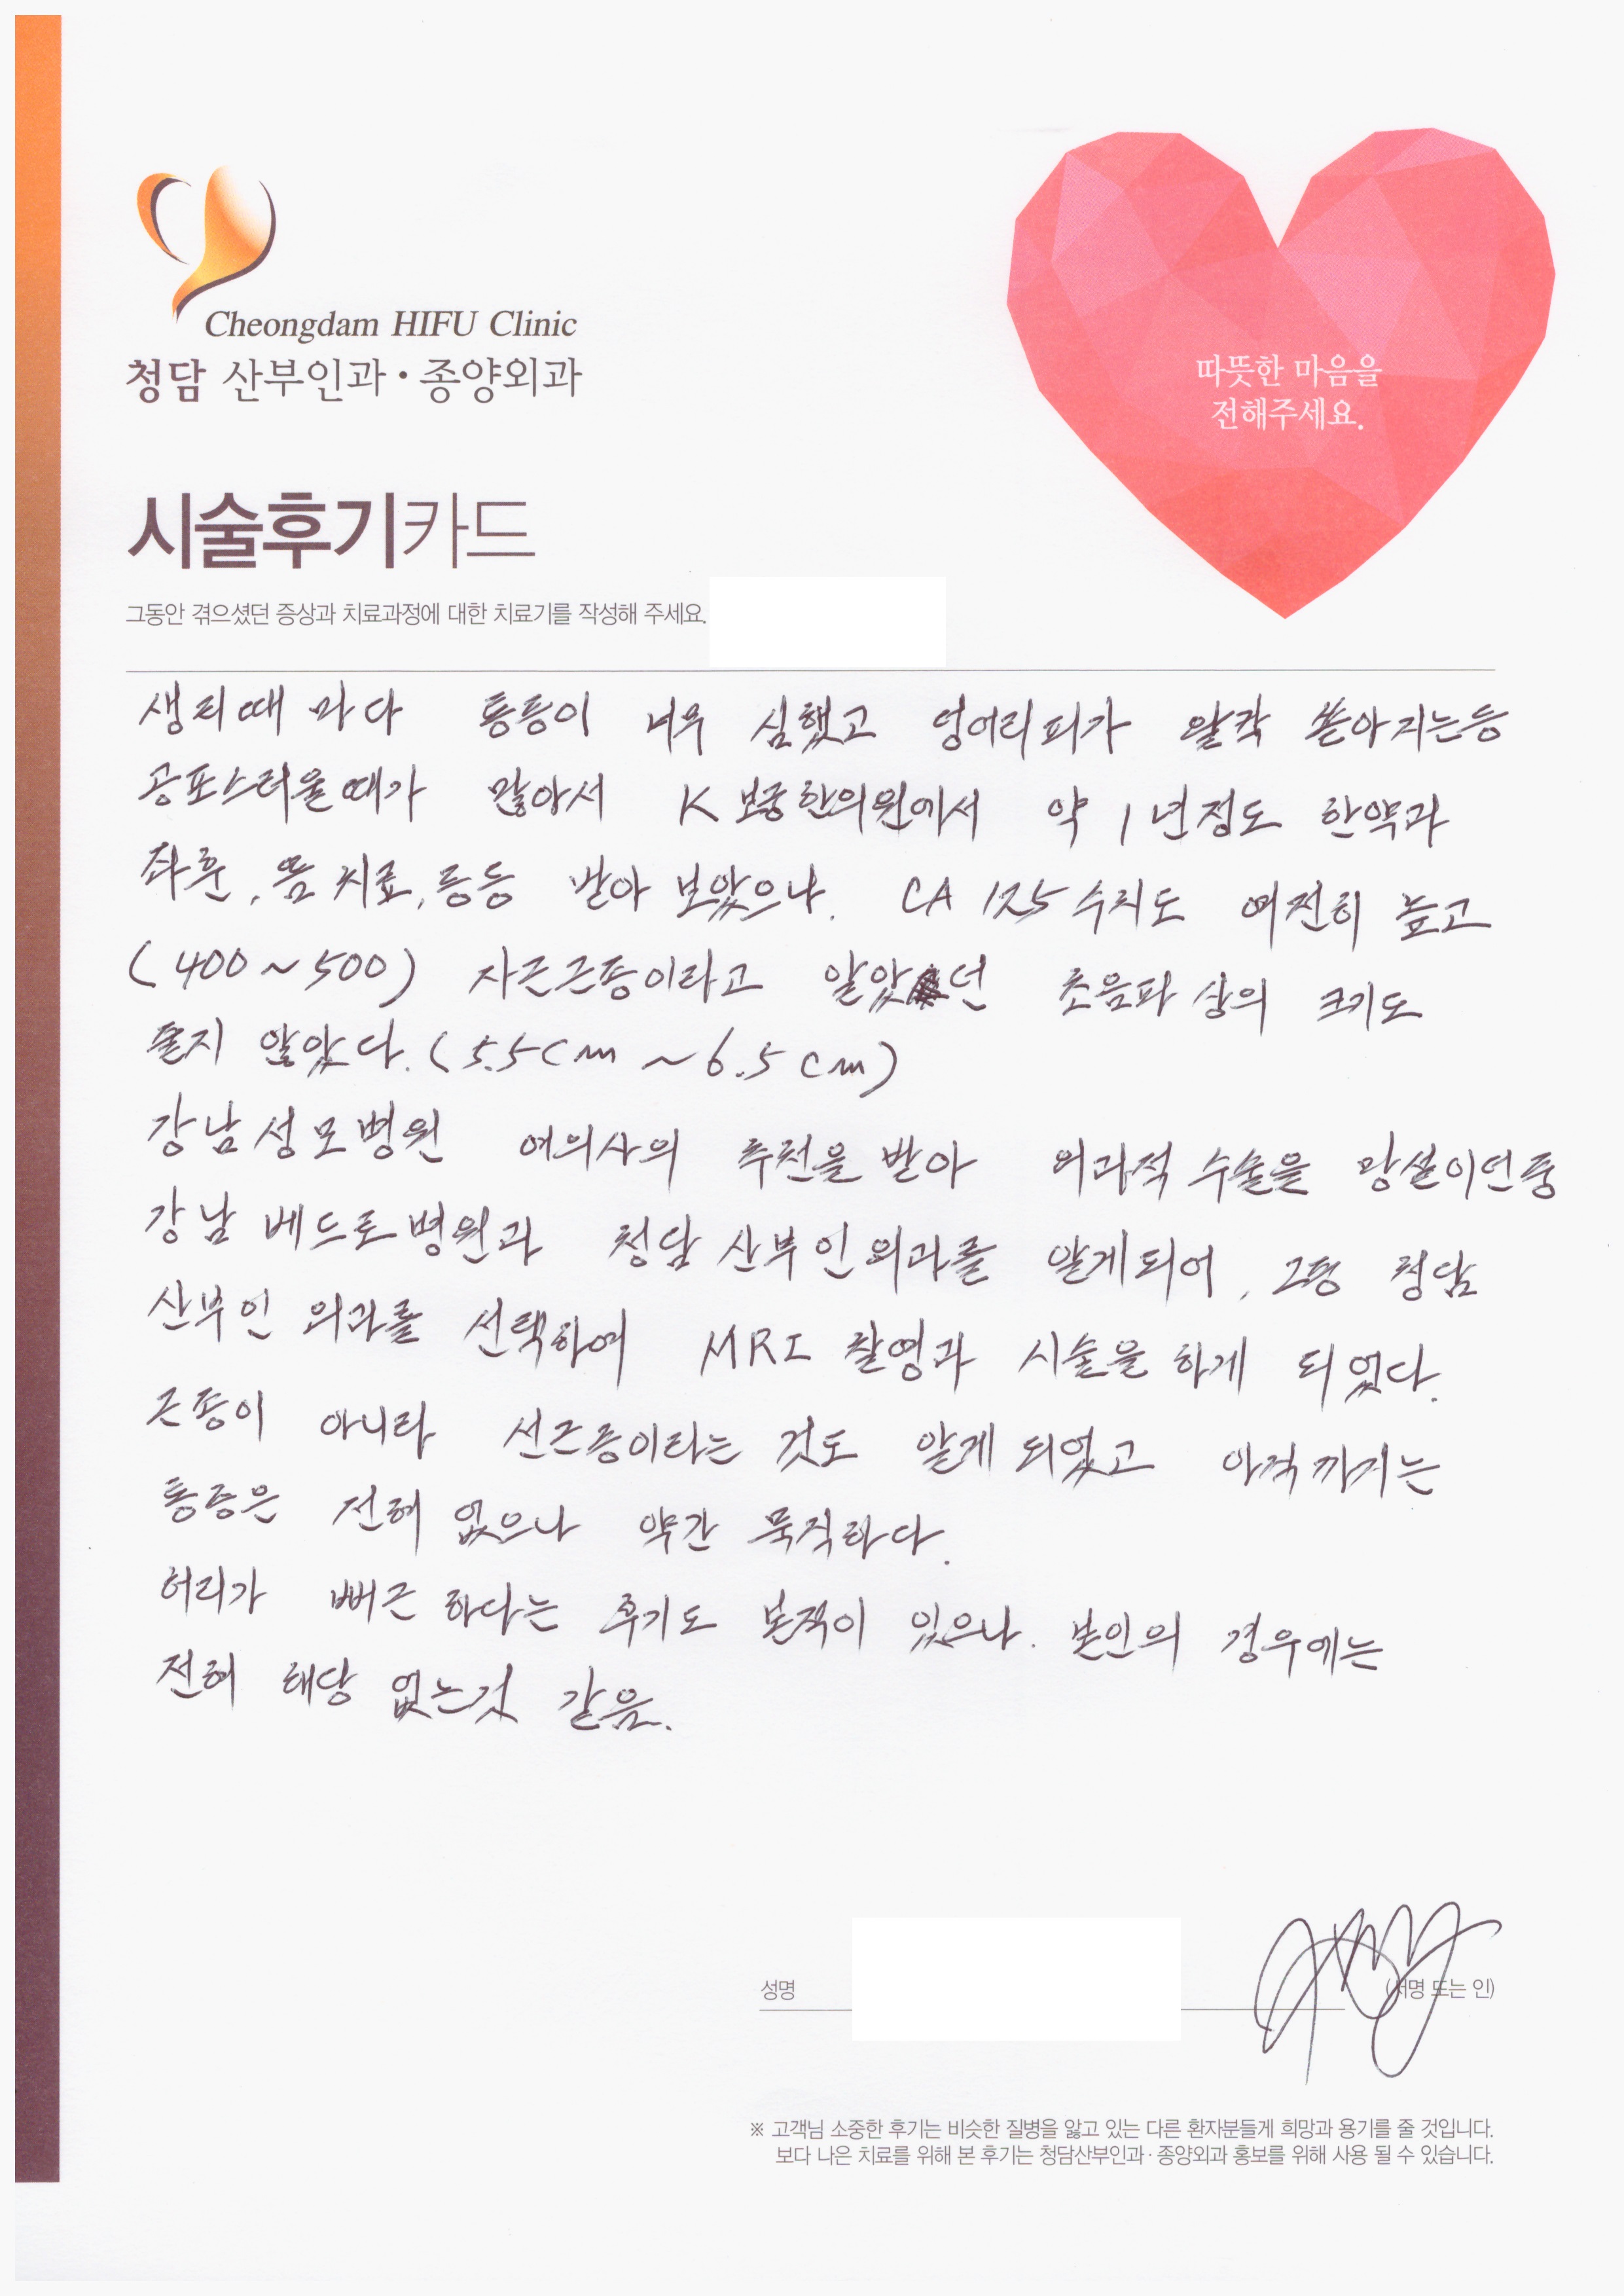 Cheongdam HIFU Clinic
청담 산부인과·종양외과
따뜻한 마음을
전해주세요.
시술후기카드
그동안 겪으셨던 증상과 치료과정에 대한 치료기를 작성해 주세요.
생리때 마다 통증이 너무 심했고 덩어리피가 왈칵 쏟아지는등
공포스러울때가 많아서 K 보궁한의원에서 약 1년정도 한약과
좌훈, 뜸 치료, 등등 받아 보았으나. CA 125 수치도 여전히 높고
(400~500) 자근근종이라고 알았던 초음파 상의 크기도
줄지 않았다. (5.5cm ~6.5cm)
강남성모병원 여의사의 추천을 받아 외과적 수술을 망설이던중
강남 베드로병원과 청담 산부인외과를 알게되어, 그중 청담
산부인 외과를 선택하여 MRI 촬영과 시술을 하게 되었다.
근종이 아니라 선근종이라는 것도 알게 되었고 아직까지는
통증은 전혀 없으나 약간 묵직하다.
허리가 뻐근 하다는 후기도 본적이 있으나. 본인의 경우에는
전혀 해당 없는것 같음.
성명 (서명 또는 인)
※ 고객님 소중한 후기는 비슷한 질병을 앓고 있는 다른 환자분들게 희망과 용기를 줄 것입니다.
보다 나은 치료를 위해 본 후기는 청담산부인과·종양외과 홍보를 위해 사용 될 수 있습니다.